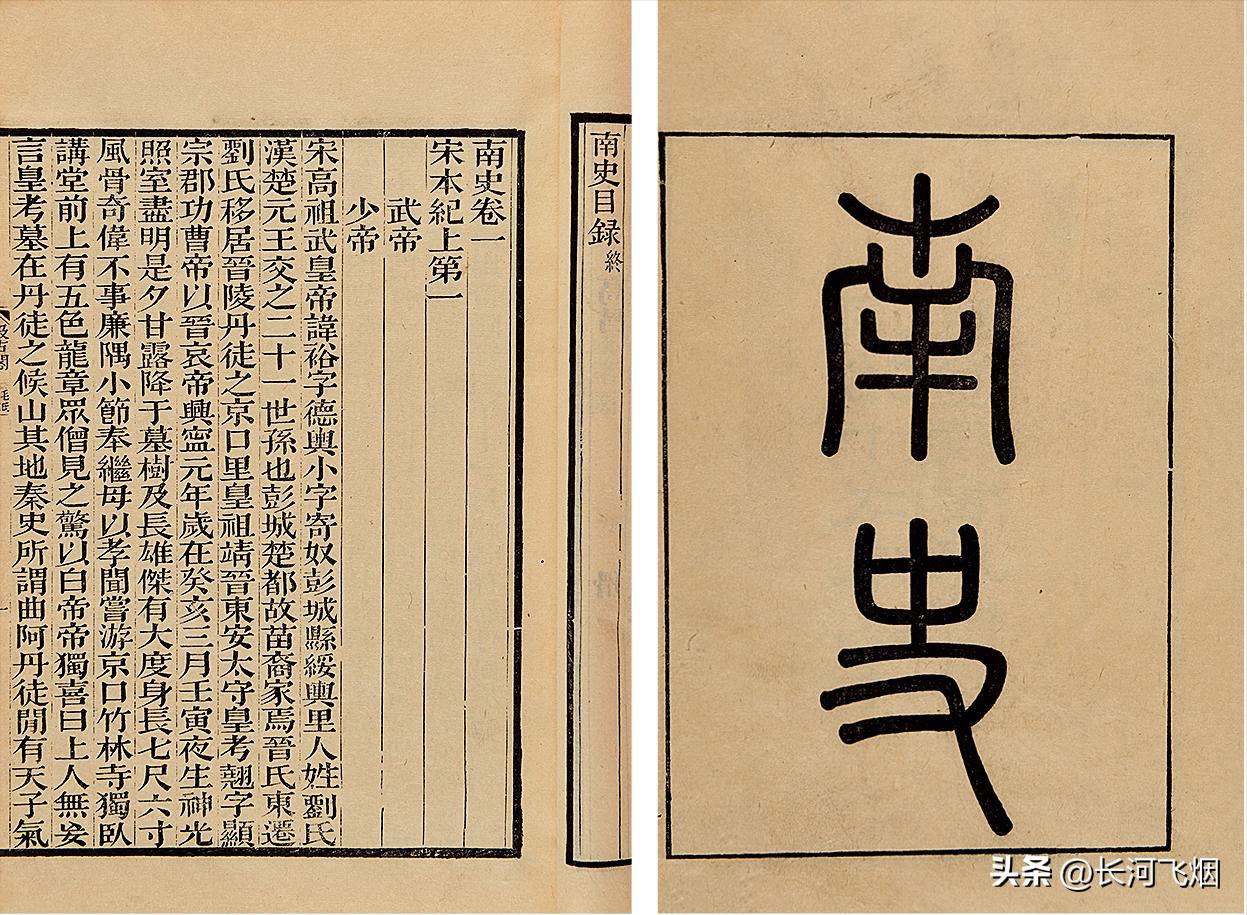 南史
南史目録終
南史卷一
宋本紀上第一
武帝
少帝
宋高祖武皇帝諱裕字德輿小字寄奴彭城縣綏輿里人姓劉氏
漢楚元王交之二十一世孫也彭城楚都故苗裔家焉晉氏東遷
劉氏移居晉陵丹徒之京口里皇祖靖晉東安太守皇考翹字顯
宗郡功曹帝以晉哀帝興寧元年歲在癸亥三月壬寅夜生神光
照室盡明是夕甘露降于墓樹及長雄傑有大度身長七尺六寸
風骨奇偉不事廉隅小節奉繼母以孝聞嘗游京口竹林寺獨臥
講堂前上有五色龍章眾僧見之驚以白帝帝獨喜曰上人無妄
言皇考墓在丹徒之候山其地秦史所謂曲阿丹徒閒有天子氣
头条 @长河飞烟